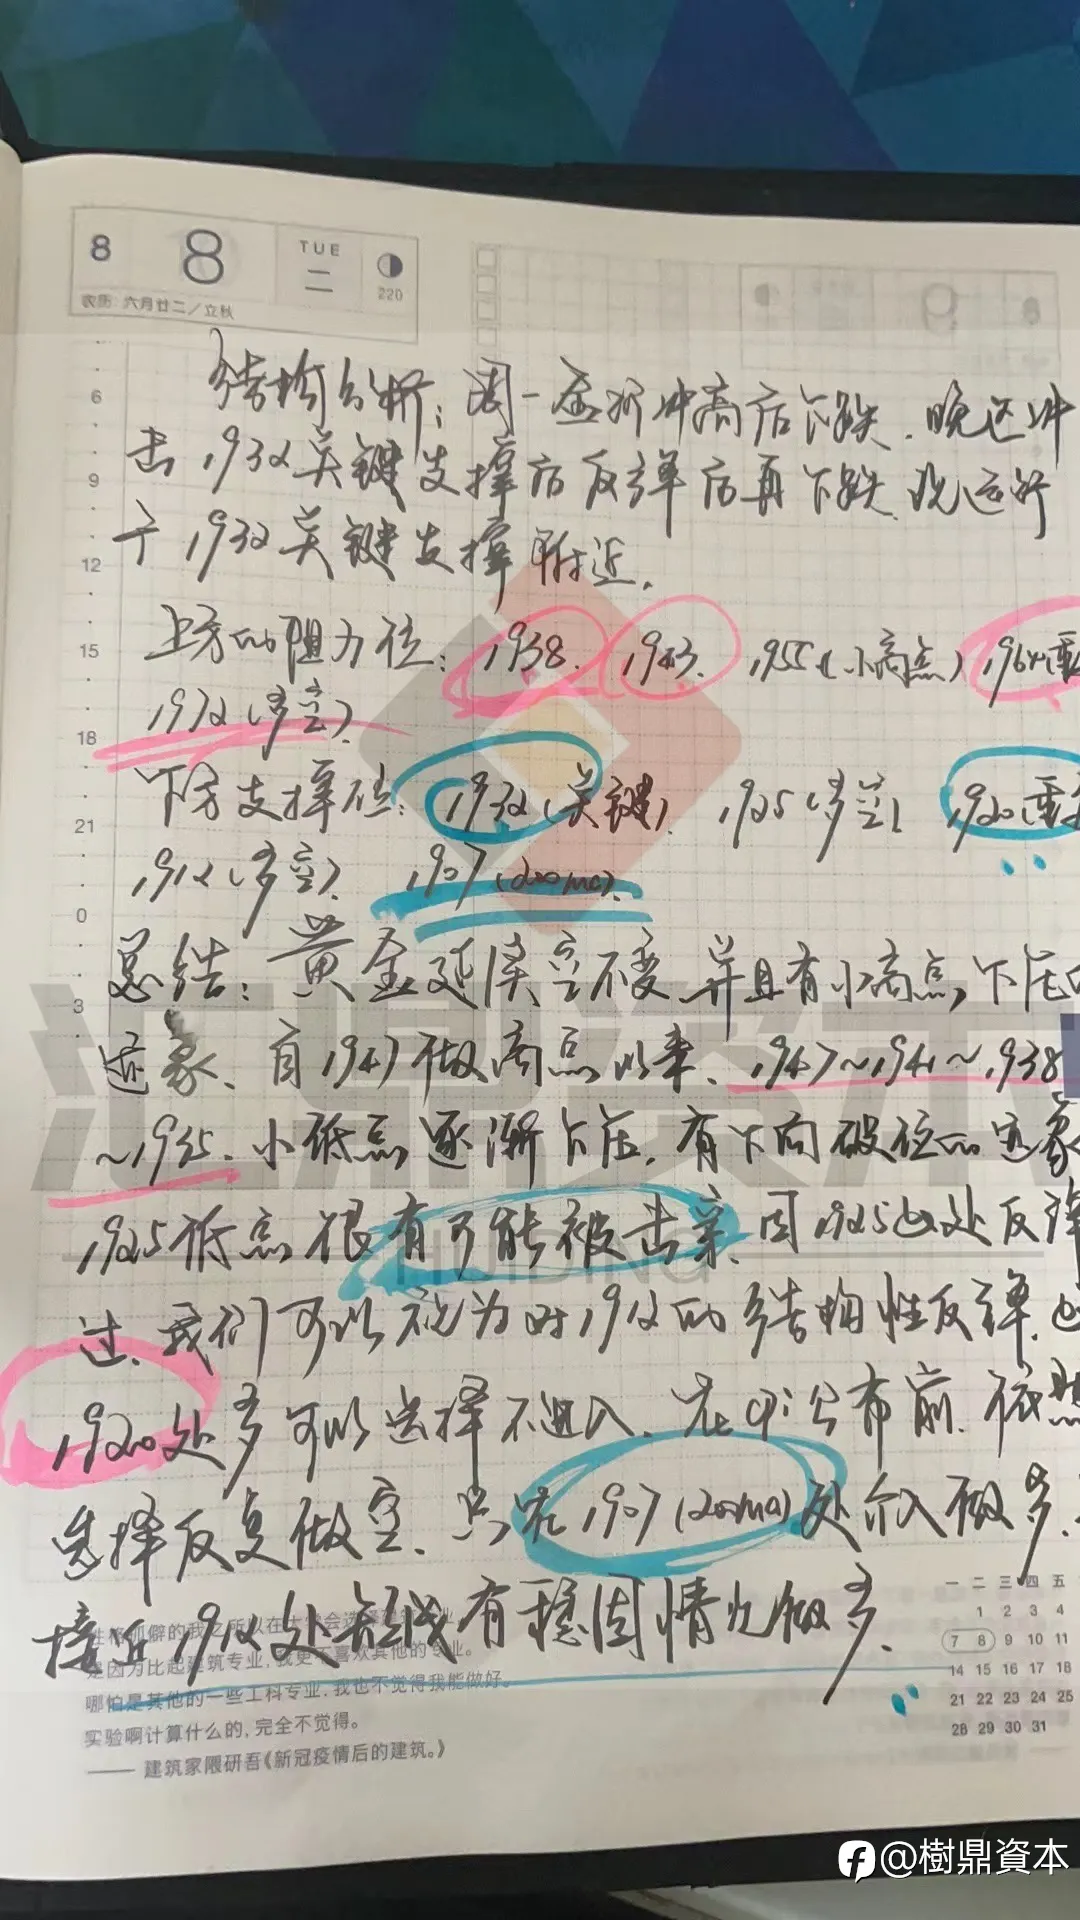 8 8 TUE 二 220
农历 六月廿二/立秋
结构分析：周一金价冲高后下跌．晚还冲
击1932关键支撑后反弹后再下跌．现运行
于1932关键支撑附近．
上方的阻力位：1938． 1943． 1955（小高点）1964
1972（多空）．
下方支撑位：1932（关键）． 1925（多空） 1920
1912（多空）． 1907（200ma）．
总结：黄金延续空不变 并且有小高点下压
迹象．自1947做高点以来．1947～1941～1938
～1935．小低点逐渐下压．有下向破位的迹象
1925低点很有可能被击穿．因1925处反弹
过．我们可以视为对1912的结构性反弹．
1920处多可以选择不进入．在cpi公布前．依然
选择反复做空．只在1907（200ma）处介入做多．
接近1912处短线有稳固情况做多．
6
9
12
15
18
21
0
3
汇鼎资本
HUIDING
是因为比起建筑专业，我更不喜欢其他的专业。
哪怕是其他的一些工科专业，我也不觉得我能做好。
实验啊计算什么的，完全不觉得。
—— 建筑家隈研吾《新冠疫情后的建筑。》
一 二 三 四 五
1 2 3 4
7 8 9 10 11
14 15 16 17 18
21 22 23 24 25
28 29 30 31
@樹鼎資本